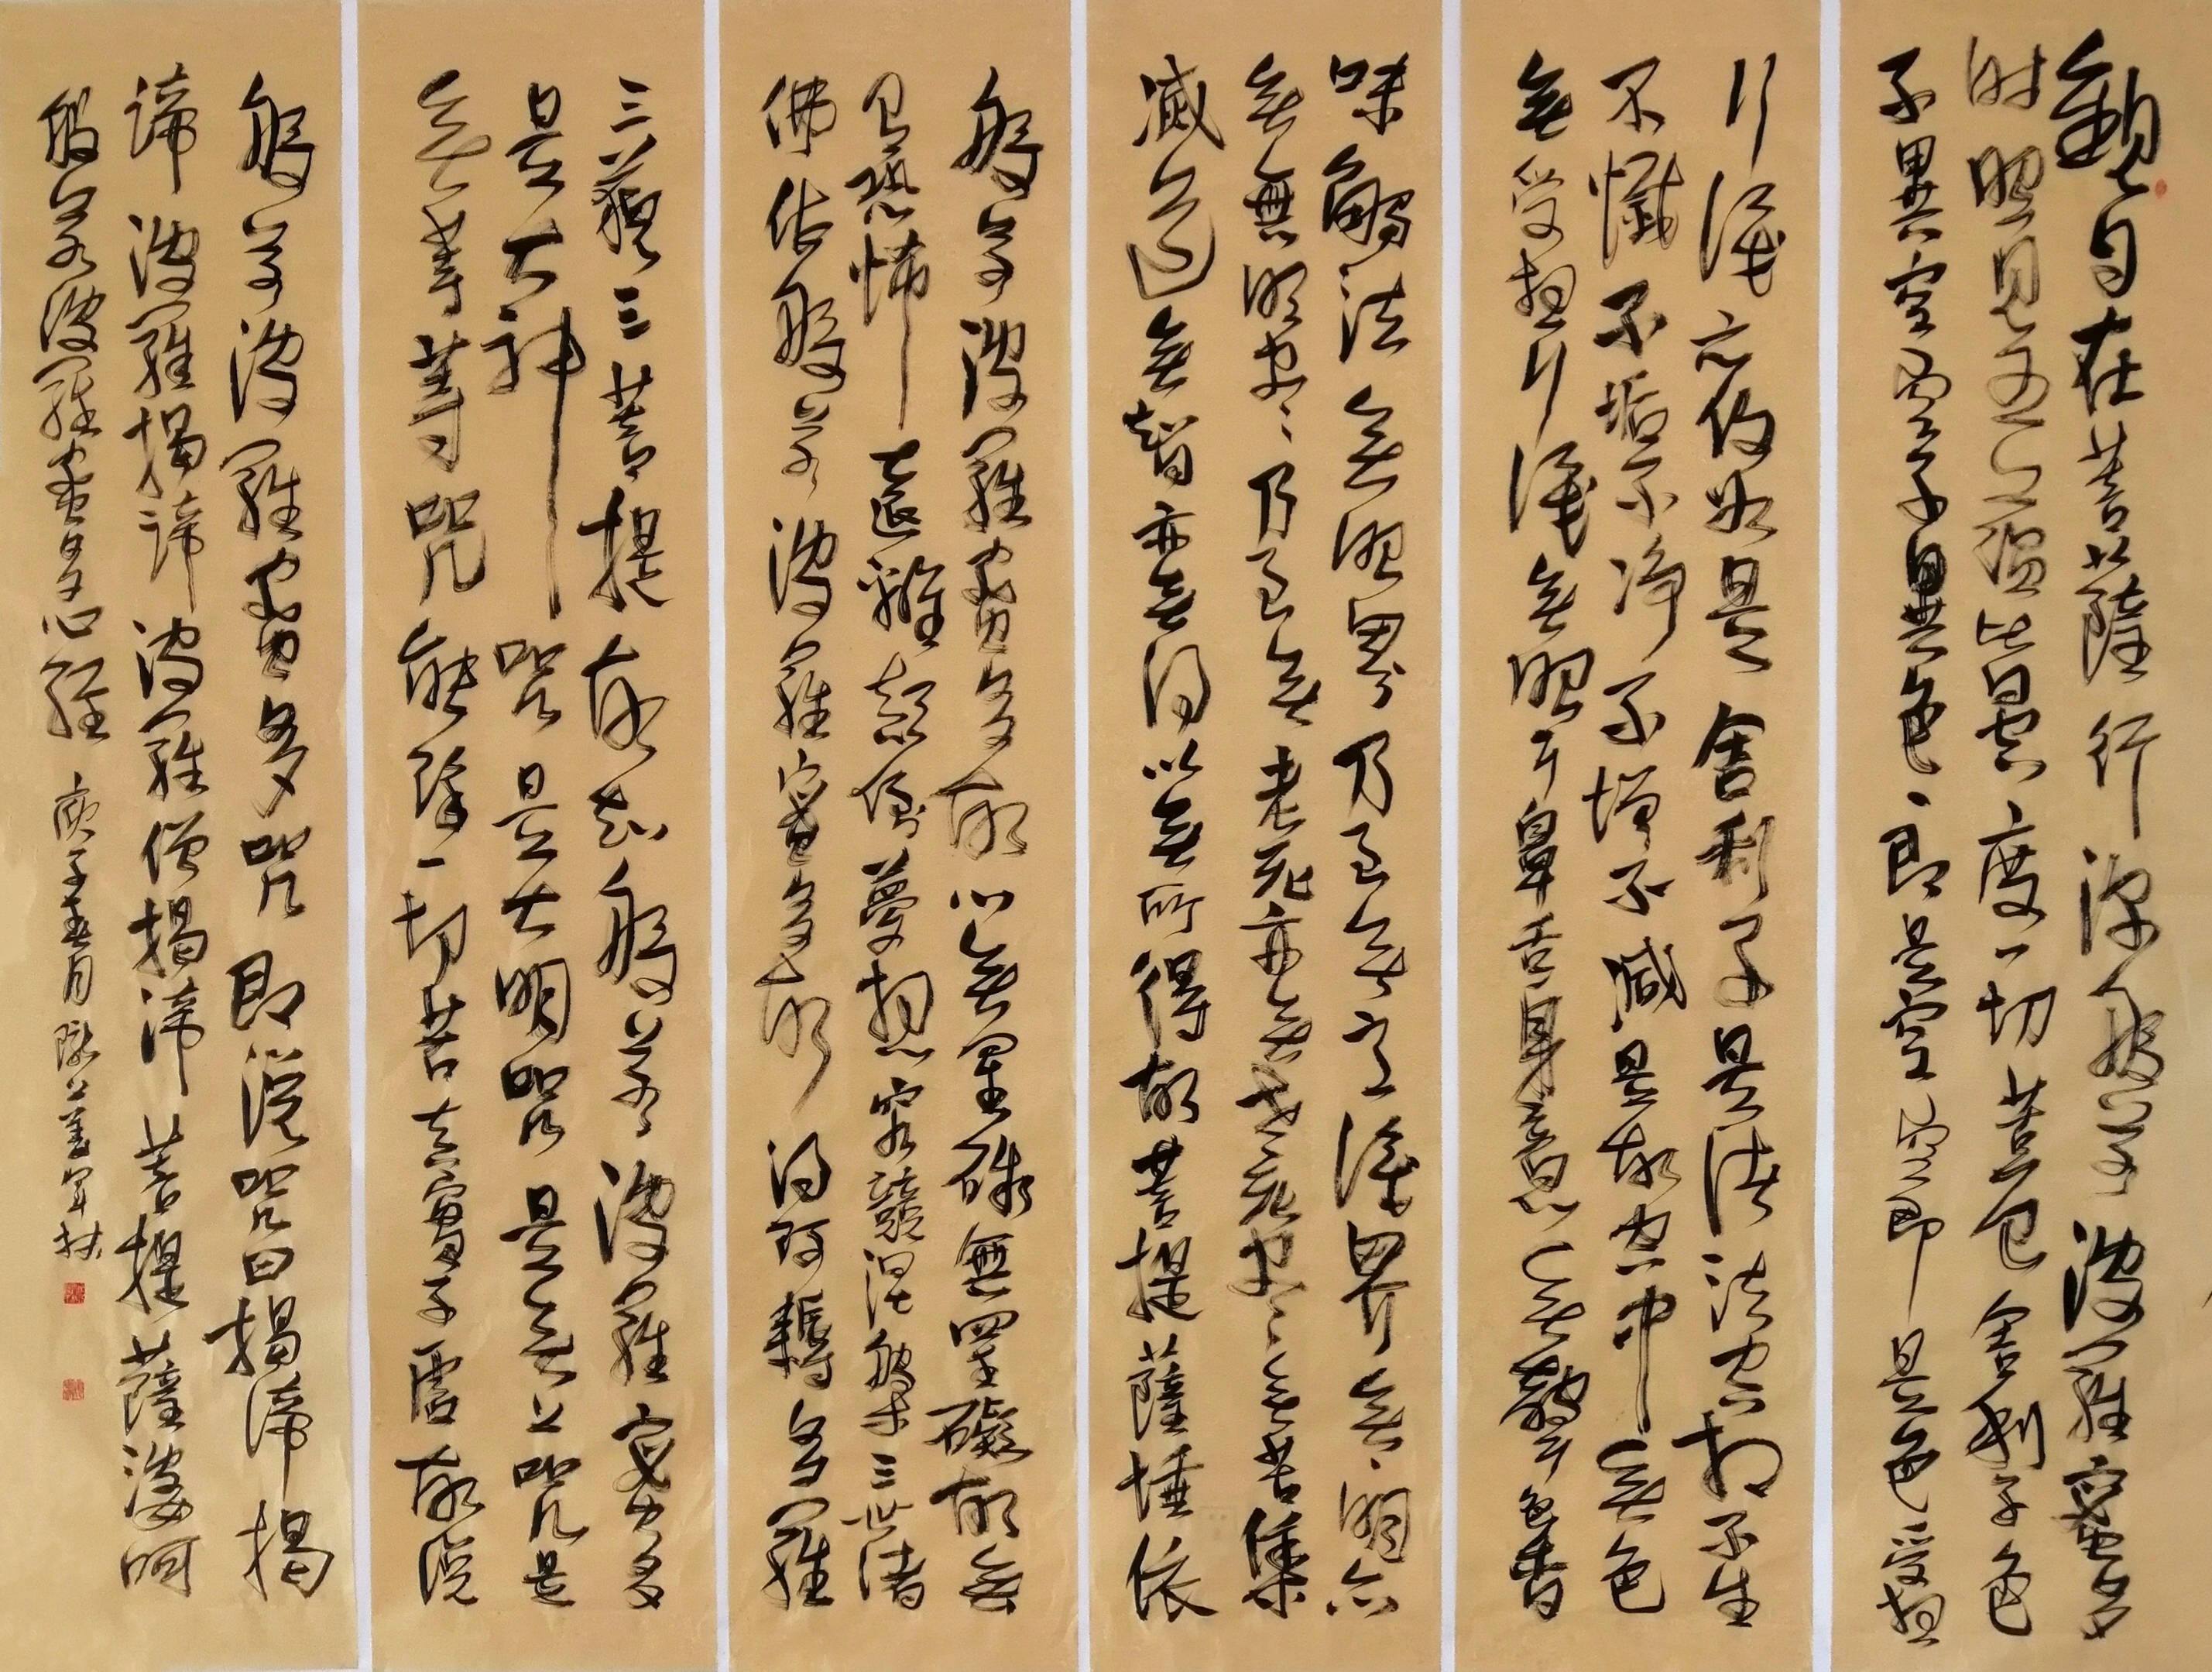 觀自在菩薩行深般若波羅蜜多
時照見五蘊皆空度一切苦厄舍利子色
不異空空不異色色即是空空即是色受想
行識亦復如是舍利子是諸法空相不生
不滅不垢不净不增不減是故空中無色
無受想行識無眼耳鼻舌身意無色聲香
味觸法無眼界乃至無意識界無無明亦
無無明盡乃至無老死亦無老死盡無苦集
滅道無智亦無得以無所得故菩提薩埵依
般若波羅蜜多故心無罣礙無罣礙故無
有恐怖遠離顛倒夢想究竟涅槃三世諸
佛依般若波羅蜜多故得阿耨多羅
三藐三菩提故知般若波羅蜜多
是大神咒是大明咒是無上咒是
無等等咒能除一切苦真實不虛故説
般若波羅蜜多咒即説咒曰揭諦揭
諦波羅揭諦波羅僧揭諦菩提薩婆呵
般若波羅蜜多心經 庚子 月